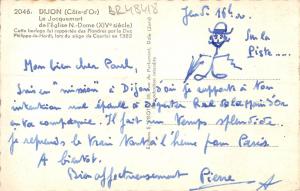 2046. DIJON (Côte-d'Or)
Le Jacquemart
de l'Église N.-Dame (XIVe siècle)
Cette horloge fut rapportée des Flandres par le Duc
Philippe-le-Hardi, lors du siège de Courtrai en 1382
BR48418
Jeudi 16h
Sur la
Piste....
Mon bien cher Paul,
Suis en "mission" à Dijon d'où je rapporte à Mon
intention
en ta compagnie. Il fait un temps splendide.
je reprends le train tantôt à l'heure pour Paris
A bientôt.
Bien affectueusement Pierre